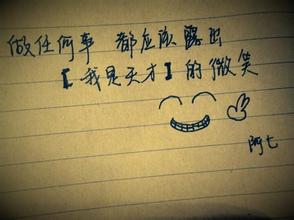 做任何事 都应该露出
【我是天才】的微笑
阿七